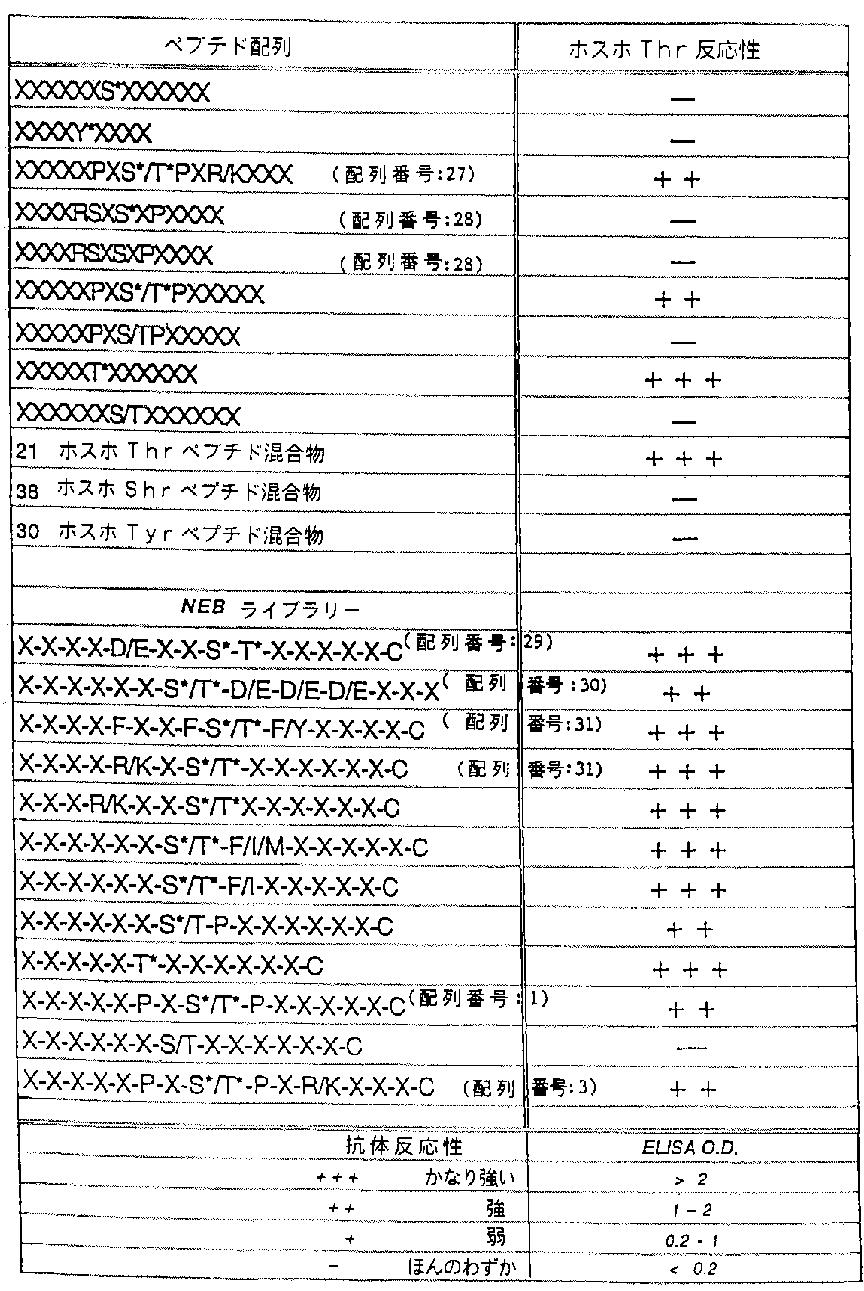 ペプチド配列 ホスホThr反応性
XXXXXXS*XXXXXX —
XXXXY*XXXX —
XXXXXPXS*/T*PXR/KXXX (配列番号:27) ++
XXXXRSXS*XPXXXX (配列番号:28) —
XXXXRSXSXPXXXX (配列番号:28) —
XXXXXPXS*/T*PXXXXX ++
XXXXXPXS/TPXXXXX —
XXXXXT*XXXXXX +++
XXXXXXXS/TXXXXXXX —
21 ホスホThrペプチド混合物 +++
38 ホスホShrペプチド混合物 —
30 ホスホTyrペプチド混合物 —
NEB ライブラリー
X-X-X-X-D/E-X-X-S*-T*-X-X-X-X-X-C(配列番号:29) +++
X-X-X-X-X-X-S*/T*-D/E-D/E-D/E-X-X-X(配列番号:30) ++
X-X-X-X-F-X-X-F-S*/T*-F/Y-X-X-X-X-C (配列番号:31) +++
X-X-X-X-R/K-X-S*/T*-X-X-X-X-X-X-C (配列番号:31) +++
X-X-X-R/K-X-X-S*/T*X-X-X-X-X-X-C +++
X-X-X-X-X-X-S*/T*-F/I/M-X-X-X-X-X-C +++
X-X-X-X-X-X-S*/T*-F/I-X-X-X-X-X-C +++
X-X-X-X-X-X-S*/T-P-X-X-X-X-X-X-C ++
X-X-X-X-X-T*-X-X-X-X-X-X-C +++
X-X-X-X-X-P-X-S*/T*-P-X-X-X-X-X-C(配列番号:1) ++
X-X-X-X-X-X-S/T-X-X-X-X-X-X-X-C —
X-X-X-X-X-P-X-S*/T*-P-X-R/K-X-X-X-C (配列番号:3) ++
抗体反応性 ELISA O.D.
+++ かなり強い > 2
++ 強 1 - 2
+ 弱 0.2 - 1
- ほんのわずか < 0.2